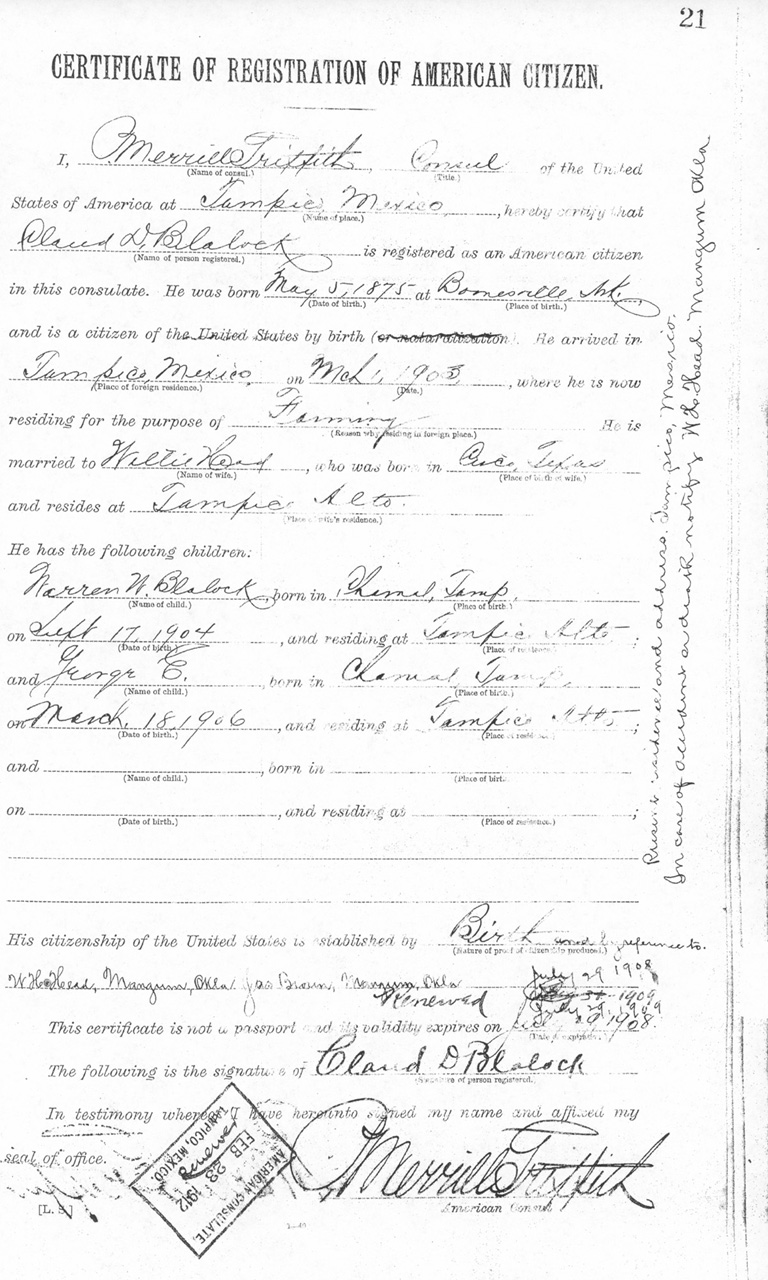 21
CERTIFICATE OF REGISTRATION OF AMERICAN CITIZEN.
I, P. Merrill Griffith, Consul of the United
(Name of consul.) (Title.)
States of America at Tampico, Mexico, hereby certify that
(Name of place.)
Claud D. Blalock is registered as an American citizen
(Name of person registered.)
in this consulate. He was born May 5, 1875 at Bonesville, Ark.
(Date of birth.) (Place of birth.)
and is a citizen of the United States by birth (or naturalization). He arrived in
Tampico, Mexico, on Mch 1, 1903, where he is now
(Place of foreign residence.) (Date.)
residing for the purpose of Farming He is
(Reason why residing in foreign place.)
married to Willie Head, who was born in Cisco, Texas
(Name of wife.) (Place of birth of wife.)
and resides at Tampico Alto.
(Place of wife's residence.)
He has the following children:
Warren W. Blalock, born in Chamal, Tamp.
(Name of child.) (Place of birth.)
on Sept 17, 1904, and residing at Tampico Alto;
(Date of birth.) (Place of residence.)
and George E., born in Chamal, Tamp.
(Name of child.) (Place of birth.)
on March 18, 1906, and residing at Tampico Alto;
(Date of birth.) (Place of residence.)
and , born in
(Name of child.) (Place of birth.)
on , and residing at ;
(Date of birth.) (Place of residence.)
His citizenship of the United States is established by Birth and by reference to.
(Nature of proof of citizenship produced.)
W H Head, Mangum, Okla. Jas Brown, Mangum, Okla
July 29 1908
Renewed 1909
July 29, 1909
This certificate is not a passport and its validity expires on 1908.
(Date of expiration.)
The following is the signature of Claud D Blalock
(Signature of person registered.)
In testimony whereof I have hereunto signed my name and affixed my
seal of office.
P. Merrill Griffith
American Consul
[L. S.]
AMERICAN CONSULATE,
FEB 23 1912
Renewed
TAMPICO, MEXICO.
address, Tampico, Mexico.
In case of accident or death notify W H Head Mangum Okla